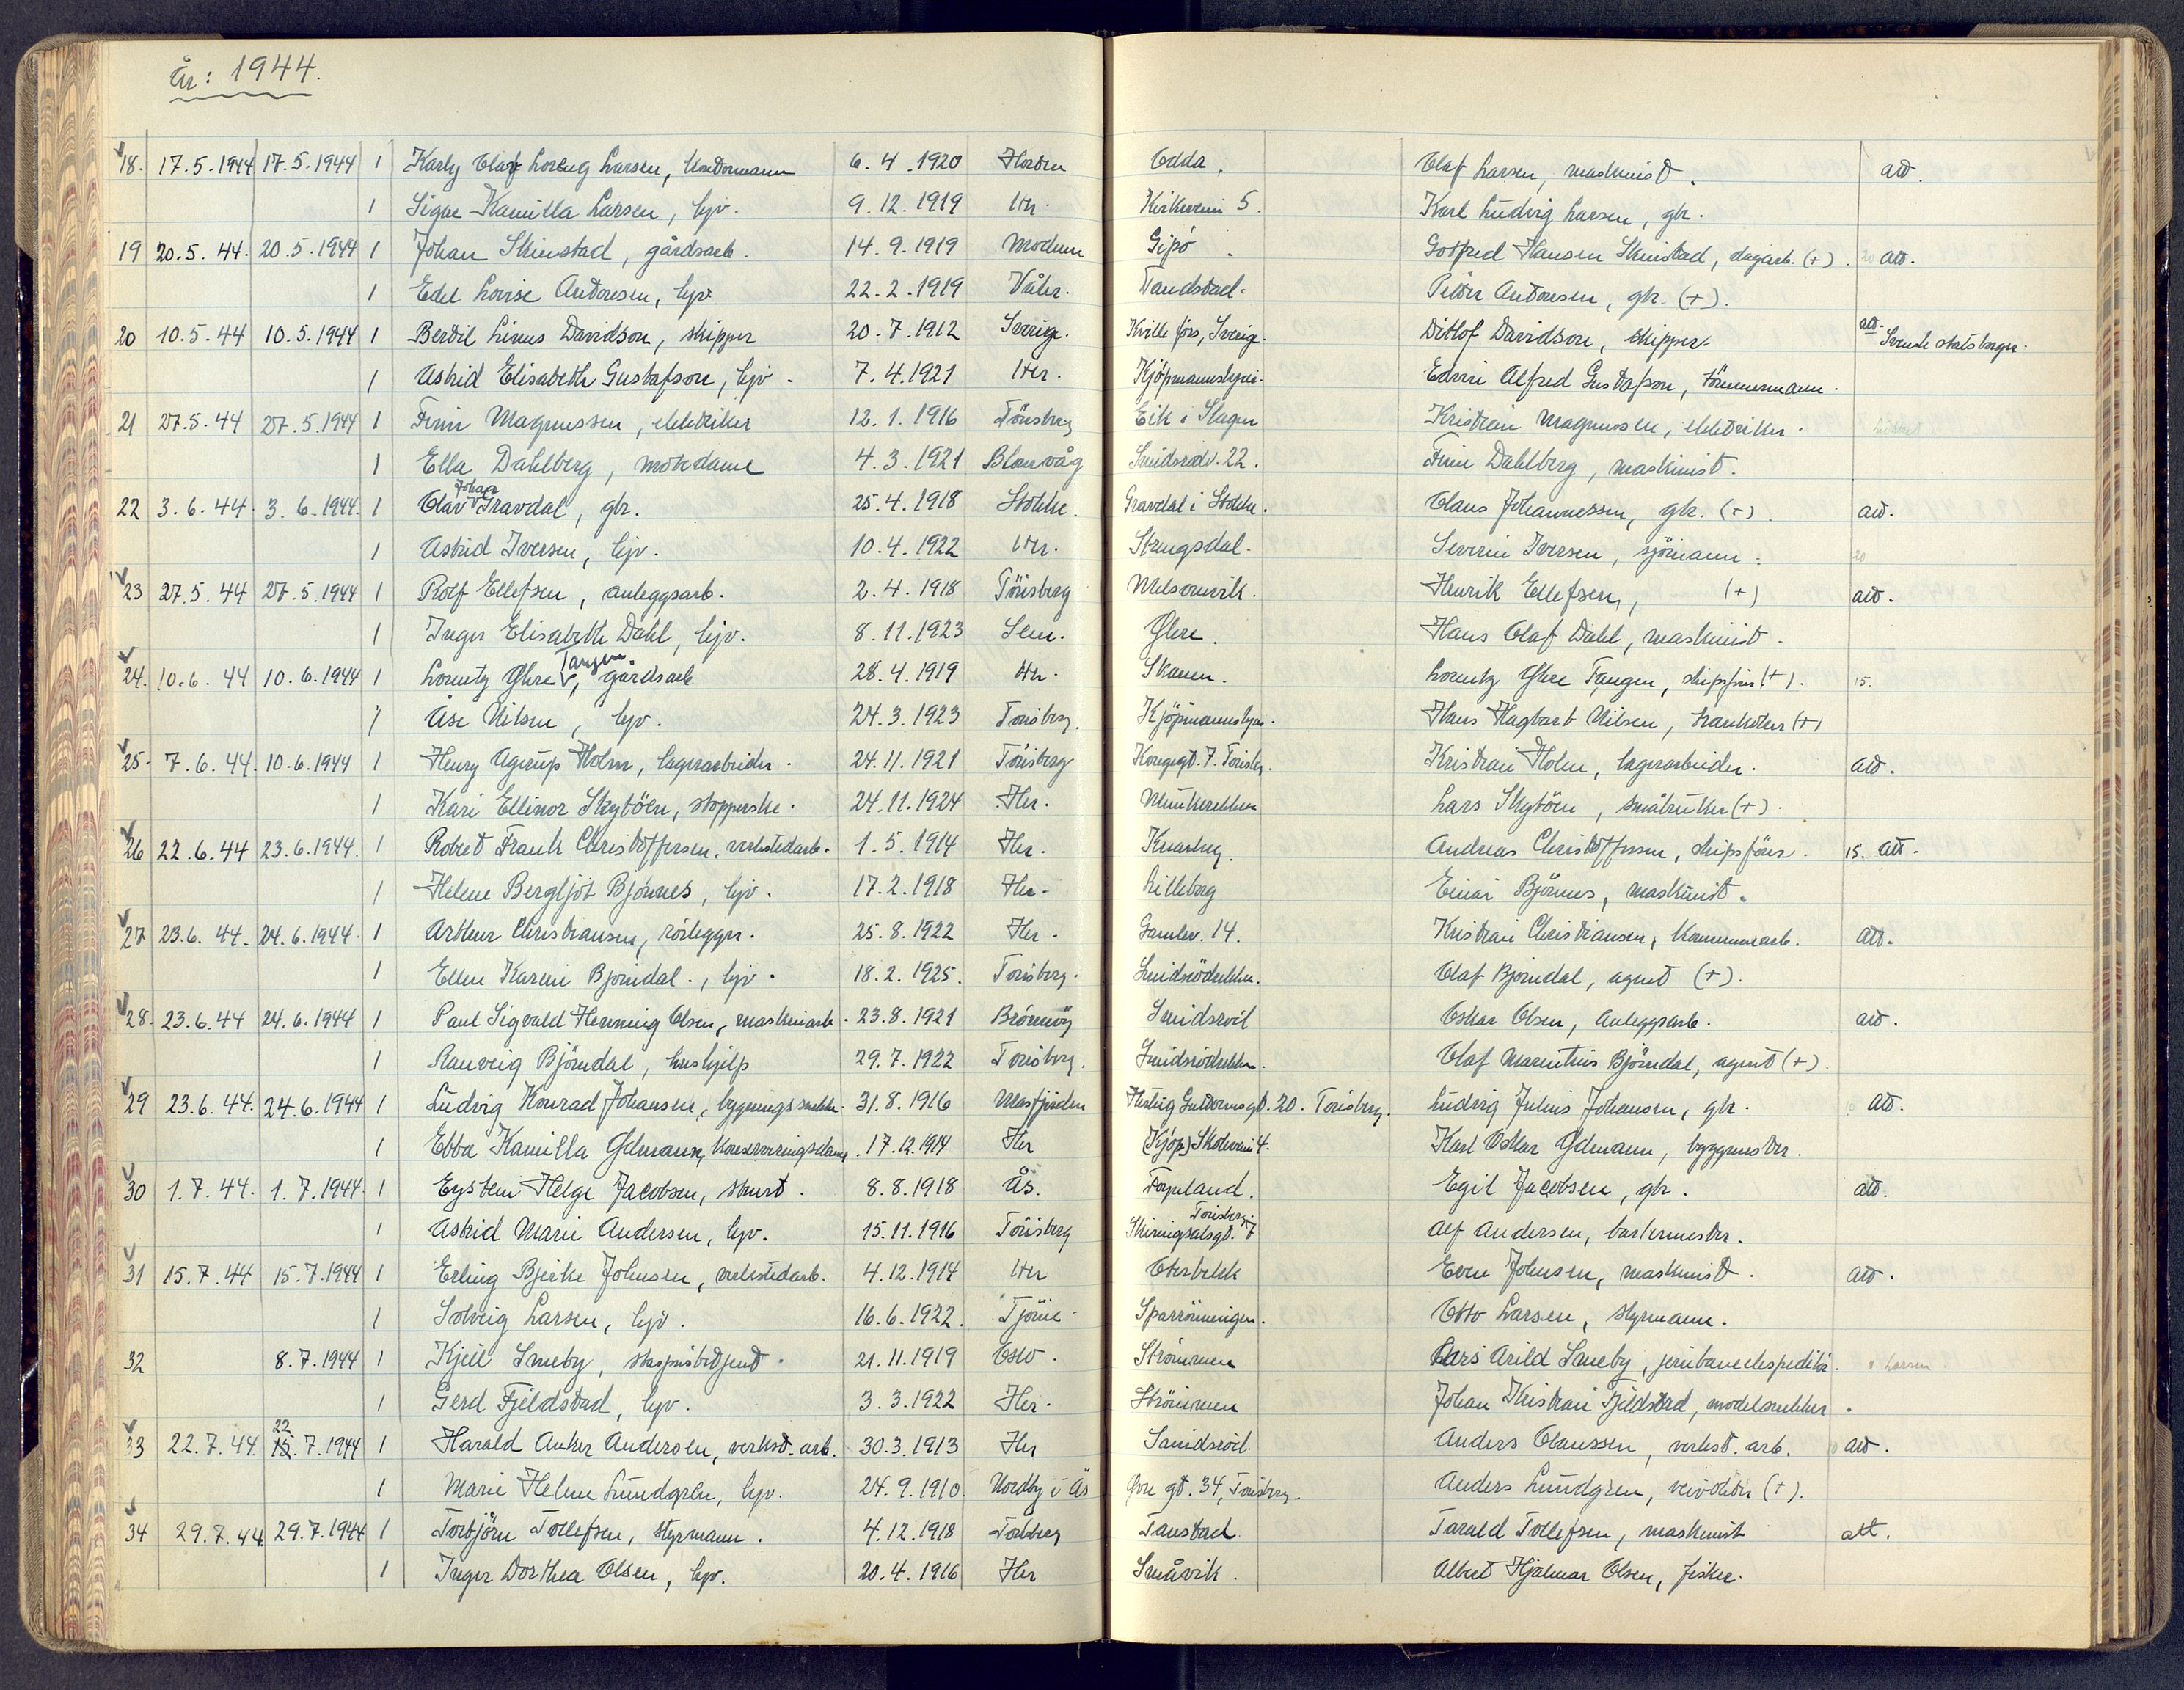 År: 1944.
18. 17.5.1944 17.5.1944 1 Karly Olaf Loreng Larsen, kontormann 6.4.1920 Horten Odda, Olaf Larsen, maskinist. att.
1 Signe Kamilla Larsen, hjv. 9.12.1919 Her. Kirkeveien 5. Karl Ludvig Larsen, gbr.
19 20.5.44. 20.5.1944 1 Johan Skinstad, gårdsarb. 14.9.1919 Modum Gipö. Gotfred Hansen Skinstad, dagarb. (+). att.
1 Edel Lovise Andresen, hjv. 22.2.1919 Våler. Tandstad. Peder Andresen, gbr. (+).
20 10.5.44 10.5.1944 1 Bertil Linus Davidson, skipper 20.7.1912 Sverige. Kville förs, Sverige. Ditlof Davidson, skipper. att. Svensk statsborger.
1 Astrid Elisabeth Gustafson, hjv. 7.4.1921 Her. Kjöpmannskjær. Edvin Alfred Gustafson, tömmermann.
21 27.5.44 27.5.1944 1 Finn Magnussen, elektriker 12.1.1916 Tönsberg Eik i Slagen Kristian Magnussen, elektriker.
1 Ella Dahlberg, motedame 4.3.1921 Blomvåg Smidsrødv. 22. Finn Dahlberg, maskinist.
22 3.6.44. 3.6.1944. 1 Olav Johan Gravdal, gbr. 25.4.1918 Stokke. Gravdal i Stokke. Claus Johannessen, gbr. (+). att.
1 Astrid Iversen, hjv. 10.4.1922 Her. Strengsdal. Severin Iversen, sjömann. 20
23 27.5.44 27.5.1944 1 Rolf Ellefsen, anleggsarb. 2.4.1918 Tönsberg Melsomvik. Henrik Ellefsen, (+) att.
1 Inger Elisabeth Dahl, hjv. 8.11.1923 Sem. Ghre. Hans Olaf Dahl, maskinist.
24. 10.6.44 10.6.1944 1 Lorentz Ghre Tangen, gårdsarb 28.4.1919 Her. Skauen. Lorentz Ghre Tangen, skipsförer (+). 15.
1 Åse Nilsen, hjv. 24.3.1923 Tönsberg. Kjöpmannskjær. Hans Hagbart Nilsen, (+)
25. 7.6.44. 10.6.1944 1 Henry Agerup Holm, lagerarbeider. 24.11.1921 Tönsberg Kongegt. 7. Tönsbg. Kristian Holm, lagerarbeider. att.
1 Kari Ellinor Skytöen, stopperske. 24.11.1924 Her. Munkerekken Lars Skytöen, småbruker (+).
26 22.6.44 23.6.1944. 1 Robert Frank Christoffersen, verkstedarb. 1.5.1914 Her. Knarberg. Andreas Christoffersen, skipsförer. 15. att.
1 Helene Bergljot Bjönnes, hjv. 17.2.1918 Her. Lilleborg Einar Bjönnes, maskinist.
27 23.6.44. 24.6.1944. 1 Arthur Christiansen, rörlegger. 25.8.1922 Her. Gamlev. 14. Kristian Christiansen, kommunearb. att.
1 Ellen Karin Bjørndal., hjv. 18.2.1925. Tønsberg. Smidsrödrekken. Olaf Bjørndal, agent (+).
28. 23.6.44 24.6.1944 1 Paul Sigvald Henning Olsen, maskinarb. 23.8.1921 Brönnöy Smidsröd Oskar Olsen, anleggsarb. att.
1 Ranveig Björndal, hushjelp 29.7.1922 Tönsberg. Smidsrödrekken. Olaf Marentius Björndal, agent (+).
29 23.6.44. 24.6.1944 1 Ludvig Konrad Johansen, bygningssnekker. 31.8.1916 Masfjorden Hertug Guttormsgt. 20. Tönsberg. Ludvig Julius Johansen, gbr. att.
1 Ebba Kamilla Gdmann, konserveringsdame. 17.12.1914 Her (Kjöp.) Skolevein 4. Karl Oskar Gdmann, byggmester.
30 1.7.44. 1.7.1944. 1 Eystein Helge Jacobsen, stuert. 8.8.1918 Ås. Föynland. Egil Jacobsen, gbr. att.
1 Astrid Marie Andersen, hjv. 15.11.1916 Tönsberg Skiringsalsgt. 7 Tönsberg Alf Andersen, bakermester.
31 15.7.44 15.7.1944 1 Erling Bjerke Johnsen, verkstedarb. 4.12.1914 Her Oterbekk Even Johnsen, maskinist. att.
1 Solveig Larsen, hjv. 16.6.1922. Tjöme. Sparrönningen. Otto Larsen, styrmann.
32 8.7.1944 1 Kjell Smeby, 21.11.1919 Oslo. Strömmen Lars Arild Smeby, jernbaneekspeditör.
1 Gerd Fjeldstad, hjv. 3.3.1922 Her. Strömmen Johan Kristian Fjeldstad, modelsnekker.
33 22.7.44. 15. 22 .7.1944 1 Harald Anker Andersen, verkst. arb. 30.3.1913 Her Smidsröd. Anders Claussen, verkst. arb. att.
1 Marie Helene Lundgren, hjv. 24.9.1910. Nordby i Ås Gvre gt. 34, Tönsberg. Anders Lundgren, (+).
34 29.7.44 29.7.1944 1 Torbjörn Tollefsen, styrmann. 4.12.1918 Tönsberg Tanstad. Tarald Tollefsen, maskinist att.
1 Inger Dorthea Olsen, hjv. 20.4.1916 Her Småvik. Albert Hjalmar Olsen, fisker.